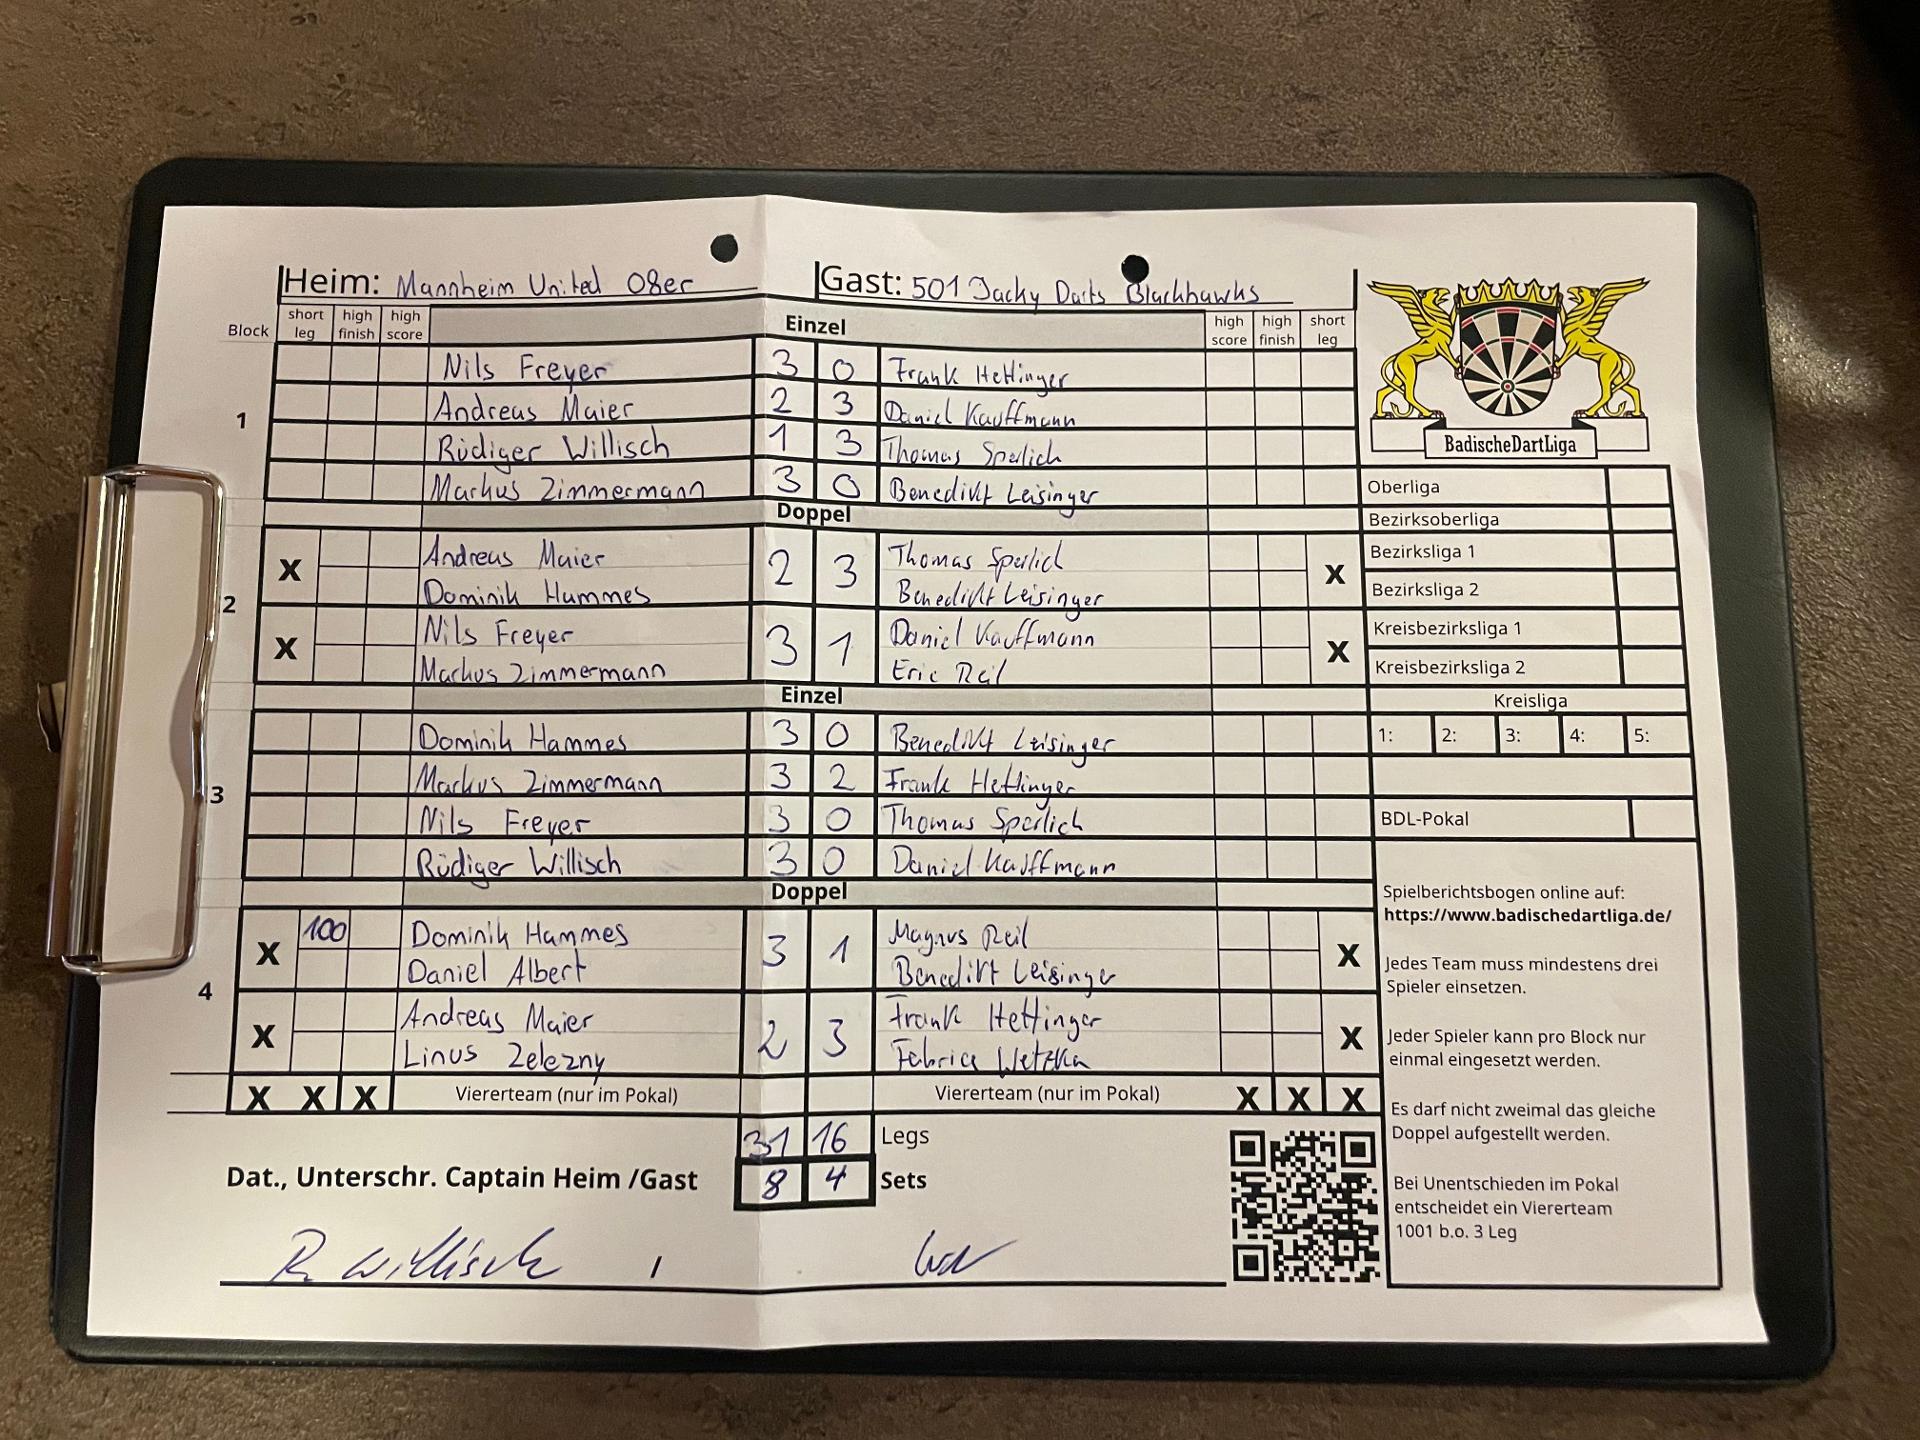 Heim: Mannheim United 08er Gast: 501 Jacky Darts Blackhawks
Block short leg high finish high score Einzel high score high finish short leg
1
Nils Freyer 3 0 Frank Hettinger
Andreas Maier 2 3 Daniel Kauffmann
Rüdiger Willisch 1 3 Thomas Sperlich
Markus Zimmermann 3 0 Benedikt Leisinger
Doppel
2
X Andreas Maier 2 3 Thomas Sperlich X
Dominik Hammes Benedikt Leisinger
X Nils Freyer 3 1 Daniel Kauffmann X
Markus Zimmermann Eric Reil
Einzel
3
Dominik Hammes 3 0 Benedikt Leisinger
Markus Zimmermann 3 2 Frank Hettinger
Nils Freyer 3 0 Thomas Sperlich
Rüdiger Willisch 3 0 Daniel Kauffmann
Doppel
4
X 100 Dominik Hammes 3 1 Magnus Reil X
Daniel Albert Benedikt Leisinger
X Andreas Maier 2 3 Frank Hettinger X
Linus Zelezny Fabrice Wetzka
X X X Viererteam (nur im Pokal) Viererteam (nur im Pokal) X X X
31 16 Legs
Dat., Unterschr. Captain Heim /Gast 8 4 Sets
R. Willisch /
BadischeDartLiga
Oberliga
Bezirksoberliga
Bezirksliga 1
Bezirksliga 2
Kreisbezirksliga 1
Kreisbezirksliga 2
Kreisliga
1: 2: 3: 4: 5:
BDL-Pokal
Spielberichtsbogen online auf:
https://www.badischedartliga.de/
Jedes Team muss mindestens drei
Spieler einsetzen.
Jeder Spieler kann pro Block nur
einmal eingesetzt werden.
Es darf nicht zweimal das gleiche
Doppel aufgestellt werden.
Bei Unentschieden im Pokal
entscheidet ein Viererteam
1001 b.o. 3 Leg